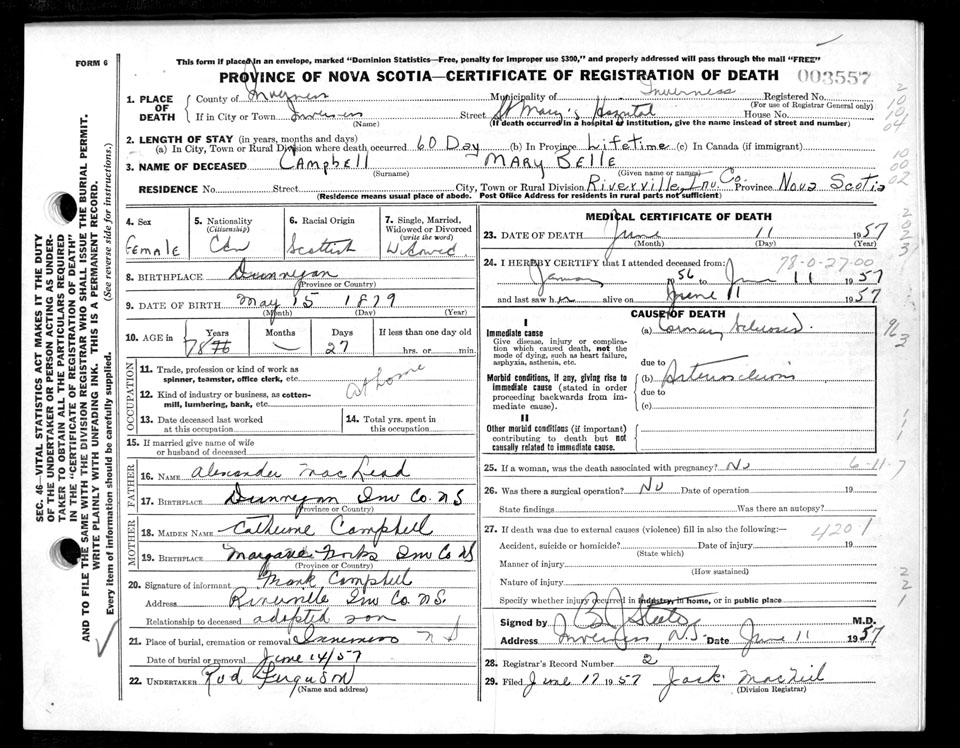 FORM 6
This form if placed in an envelope, marked "Dominion Statistics—Free, penalty for improper use $300," and properly addressed will pass through the mail "FREE"
PROVINCE OF NOVA SCOTIA—CERTIFICATE OF REGISTRATION OF DEATH 003557
1. PLACE OF DEATH
County of Inverness Municipality of Inverness Registered No.
(For use of Registrar General only)
If in City or Town Inverness Street St Mary's Hospital House No.
(Name) (If death occurred in a hospital or institution, give the name instead of street and number)
2. LENGTH OF STAY (in years, months and days)
(a) In City, Town or Rural Division where death occurred 60 Day (b) In Province Lifetime (c) In Canada (if immigrant)
3. NAME OF DECEASED Campbell Mary Belle
(Surname) (Given name or names)
RESIDENCE No. Street City, Town or Rural Division Riverville, Inv. Co. Province Nova Scotia
(Residence means usual place of abode. Post Office Address for residents in rural parts not sufficient)
4. Sex
Female
5. Nationality
(Citizenship)
Can
6. Racial Origin
Scottish
7. Single, Married, Widowed or Divorced
(write the word)
Widowed
8. BIRTHPLACE Dunvegan
(Province or Country)
9. DATE OF BIRTH May 15 1879
(Month) (Day) (Year)
10. AGE in
Years Months Days If less than one day old
78 27 hrs. or min.
OCCUPATION
11. Trade, profession or kind of work as spinner, teamster, office clerk, etc.
at home
12. Kind of industry or business, as cotten-mill, lumbering, bank, etc.
13. Date deceased last worked at this occupation
14. Total yrs. spent in this occupation
15. If married give name of wife or husband of deceased
FATHER
16. Name Alexander MacLeod
17. Birthplace Dunvegan Inv Co. NS
(Province or Country)
MOTHER
18. Maiden Name Catherine Campbell
19. Birthplace Margaree Forks Inv Co NS
(Province or Country)
20. Signature of informant Campbell
Address Riverville Inv Co. N.S.
Relationship to deceased adopted son
21. Place of burial, cremation or removal Inverness N S
Date of burial or removal June 14/57
22. UNDERTAKER Rod Ferguson
(Name and address)
MEDICAL CERTIFICATE OF DEATH
23. DATE OF DEATH June 11 1957
(Month) (Day) (Year)
24. I HEREBY CERTIFY that I attended deceased from: 78-0-27-00
January 1956 to June 11 1957
and last saw her alive on June 11 1957
CAUSE OF DEATH
I
Immediate cause
Give disease, injury or complication which caused death, not the mode of dying, such as heart failure, asphyxia, asthenia, etc.
(a) Coronary Sclerosis
due to
Morbid conditions, if any, giving rise to immediate cause (stated in order proceeding backwards from immediate cause).
(b) Arteriosclerosis
due to
(c)
II
Other morbid conditions (if important) contributing to death but not causally related to immediate cause.
25. If a woman, was the death associated with pregnancy? No
6-11-7
26. Was there a surgical operation? No Date of operation 19
State findings Was there an autopsy?
27. If death was due to external causes (violence) fill in also the following:—
420-1
Accident, suicide or homicide? Date of injury 19
(State which)
Manner of injury
(How sustained)
Nature of injury
Specify whether injury occurred in industry, in home, or in public place
Signed by M.D.
Address Inverness, N.S. Date June 11 1957
28. Registrar's Record Number 2
29. Filed June 17 1957 Jack MacNeil
(Division Registrar)
SEC. 46—VITAL STATISTICS ACT MAKES IT THE DUTY
OF THE UNDERTAKER OR PERSON ACTING AS UNDER-
TAKER TO OBTAIN ALL THE PARTICULARS REQUIRED
IN THE "CERTIFICATE OF REGISTRATION OF DEATH"
AND TO FILE THE SAME WITH THE DIVISION REGISTRAR WHO SHALL ISSUE THE BURIAL PERMIT.
WRITE PLAINLY WITH UNFADING INK. THIS IS A PERMANENT RECORD.
Every item of information should be carefully supplied. (See reverse side for instructions.)